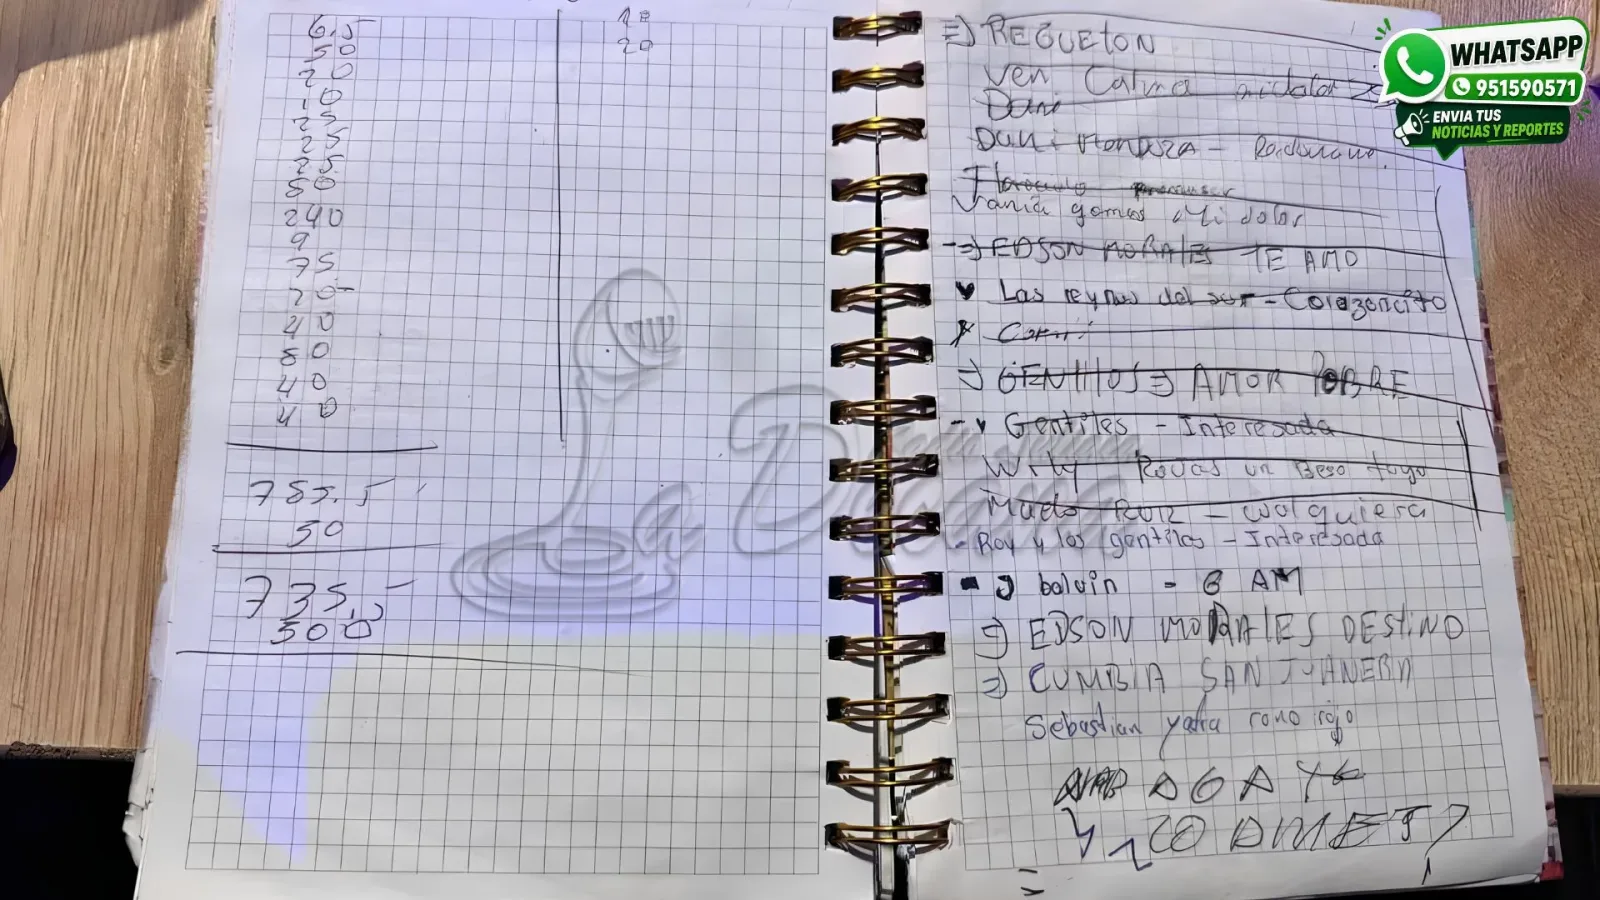 6.5
50
20
10
25
25
25.
50
240
9
75
20-
40
80
40
40
785.5
50
735.5
500
10
20
=) REGUETON
Ven Calma mi dolor
Dani
Dani
Vania gomes Mi dolor
-=) EDSON MORALES TE AMO
♥ Las reynas del sur - Corazoncito
=) GENTILES =) AMOR POBRE
- ♥ Gentiles - Interesada
Wily Rovas un Beso tuyo
RUIZ - cualquiera
- Roy y los gentiles - Interesada
balvin - 6 AM
=) EDSON MORALES DESTINO
=) CUMBIA SAN JUANERA
Sebastian yatra rono rojo
La Decana
WHATSAPP
951590571
ENVIA TUS
NOTICIAS Y REPORTES